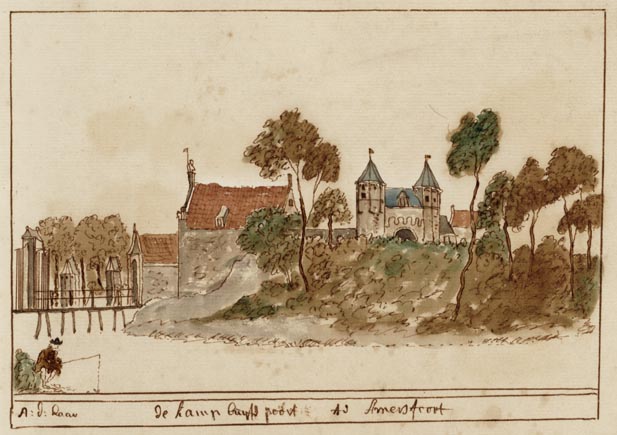 A: d: Haar de kamp buyts poort tot Amersfoort